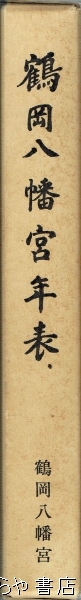 鶴岡八幡宮年表
鶴岡八幡宮
や書店